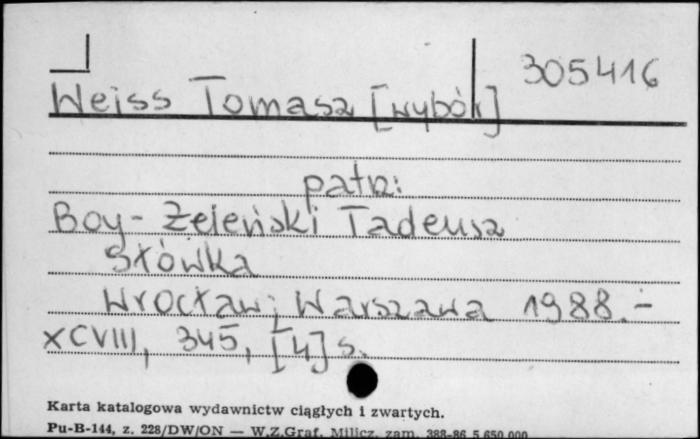 305416
Weiss Tomasz [wybór]
patrz:
Boy-Żeleński Tadeusz
Słówka
Wrocław; Warszawa 1988.-
XCVIII, 345, [4] s.
Karta katalogowa wydawnictw ciągłych i zwartych.
Pu-B-144, z. 228/DW/ON — W.Z.Graf. Milicz, zam. 388-86 5.650.000